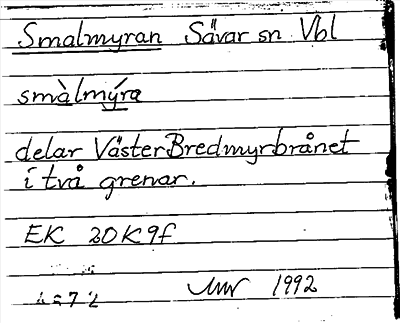 Smalmyran Sävar sn Vbl
smàlmýra
delar Väster Bredmyrbrånet
i två grenar.
EK 20K9f
1992